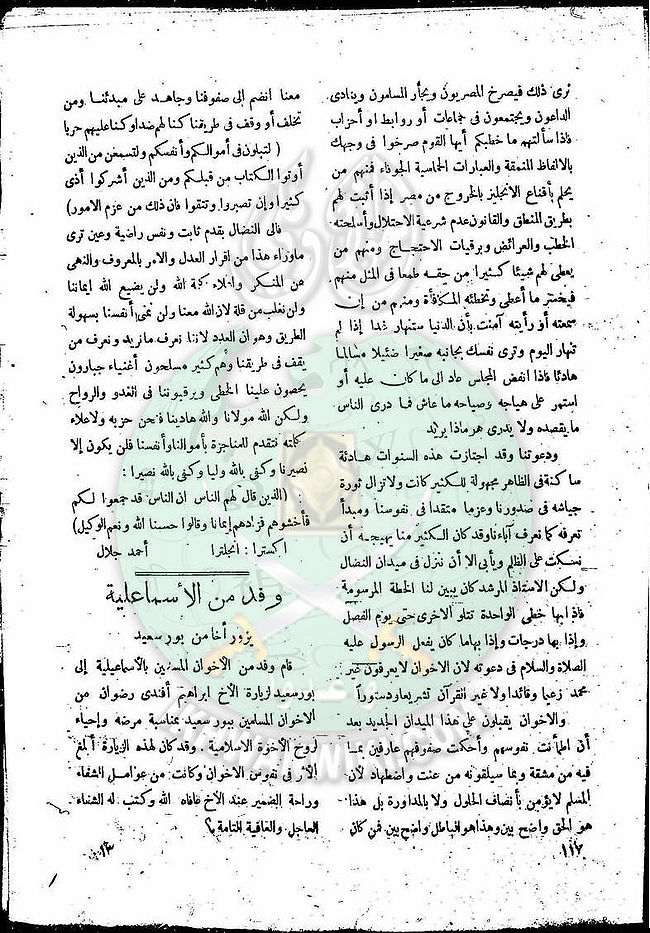 ترى ذلك فيصرخ المصريون ويجأر المسلمون وينادى
الداعون ويجتمعون فى جماعات أو روابط او أحزاب
فاذا سألتهم ما خطبكم أيها القوم صرخوا فى وجهك
بالالفاظ المنمقة والعبارات الحماسية الجوفاء فمنهم من
يحلم بأقناع الانجليز بالخروج من مصر إذا أثبت لهم
بطريق المنطق والقانون عدم شرعية الاحتلال وأسلحته
الخطب والعرائض وبرقيات الاحتجاج ومنهم من
يعطى لهم شيئا كثيرا من حقه طمعا فى المثل منهم
فيخسر ما أعطى وتخطئه المكافأة ومنهم من إن
سمعته أو رأيته آمنت بأن الدنيا ستنهار غدا إذا لم
تنهار اليوم وترى نفسك بجانبه صغيرا ضئيلا مسالما
هادئا فاذا انفض المجلس عاد الى ما كان عليه أو
استمر على هياجه وصياحه ما عاش فما درى الناس
ما يقصده ولا يدرى هو ماذا يريد
ودعوتنا وقد اجتازت هذه السنوات هادئة
ساكنة فى الظاهر مجهولة للكثير كانت ولا تزال ثورة
جياشه فى صدورنا وعزما متقدا فى نفوسنا ومبدأ
نعرفه كما نعرف آباءنا وقد كان الكثير منا يهيجه أن
نسكت على الظلم ويأبى الا أن ننزل فى ميدان النضال
ولكن الاستاذ المرشد كان يبين لنا الخطة المرسومة
فاذا بها خطى الواحدة تتلو الاخرى حتى يوم الفصل
وإذا بها درجات وإذا بها ما كان يفعل الرسول عليه
الصلاة والسلام فى دعوته لان الاخوان لا يعرفون غير
محمد زعيما وقائدا ولا غير القرآن تشريعا ودستوراً
والاخوان يقبلون على هذا الميدان الجديد بعد
أن اطمأنت نفوسهم وأحكمت صفوفهم عارفين بما
فيه من مشقة وبما سيلقونه من عنت واضطهاد لأن
المسلم لا يؤمن بأنصاف الحلول ولا بالمداورة بل هذا
هو الحق واضح بين وهذا هو الباطل واضح بين فمن كان
١١٧
معنا انضم الى صفوفنا وجاهد على مبدئنا ومن
تخلف أو وقف فى طريقنا كنا لهم ضدا وكنا عليهم حربا
( لتبلون فى أموالكم وأنفسكم ولتسمعن من الذين
أوتوا الكتاب من قبلكم ومن الذين أشركوا أذى
كثيرا وإن تصبروا وتتقوا فان ذلك من عزم الامور)
فالى النضال بقدم ثابت ونفس راضية وعين ترى
ماوراء هذا من إقرار العدل والامر بالمعروف والنهى
عن المنكر واعلاء كلمة الله ولن يضيع الله ايماننا
ولن نغلب من قلة لان الله معنا ولن نمنى أنفسنا بسهولة
الطريق وهوان العدد لاننا نعرف ما نريد ونعرف من
يقف فى طريقنا وهم كثير مسلحون أغنياء جبارون
يحصون علينا الخطى ويرقبوننا فى الغدو والرواح
ولكن الله مولانا والله هادينا فنحن حزبه ولاعلاء
كلمته فنتقدم للمناجزة بأموالنا وأنفسنا فلن يكون إلا
نصيرنا وكفى بالله وليا وكفى بالله نصيرا :
( الذين قال لهم الناس ان الناس قد جمعوا لكم
فأخشوهم فزادهم إيمانا وقالوا حسبنا الله ونعم الوكيل)
اكسترا : انجلترا أحمد جلال
وفد من الأسماعلية
يزور أخا من بورسعيد
قام وفد من الأخوان المسلمين بالأسماعيلية إلى
بورسعيد لزيارة الآخ ابراهيم أفندى رضوان من
الاخوان المسلمين ببورسعيد بمناسبة مرضه وإحياء
لروح الأخوة الاسلامية . وقد كان لهذه الزيارة أبلغ
الأثر فى نفوس الاخوان وكانت من عوامل الشفاء
وراحة الضمير عند الآخ عافاه الله وكتب له الشفاء
العاجل والعافية التامة ؟
١٣